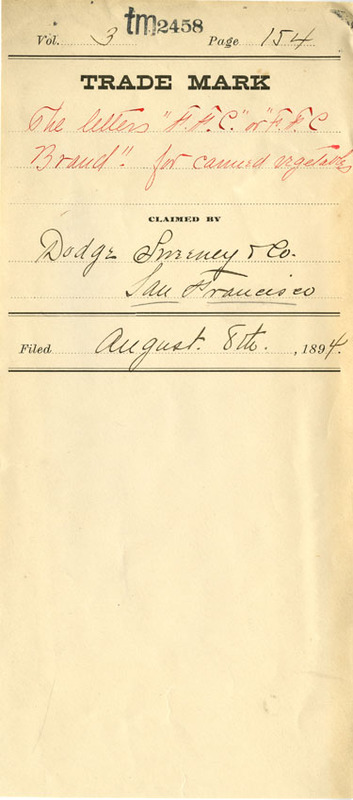 tm 2458
Vol. 3 Page 154
TRADE MARK
The letters "F.F.C." or "F.F.C
Brand". for canned vegetables
CLAIMED BY
Dodge Sweeney & Co.
San Francisco
Filed August. 8th. , 1894.